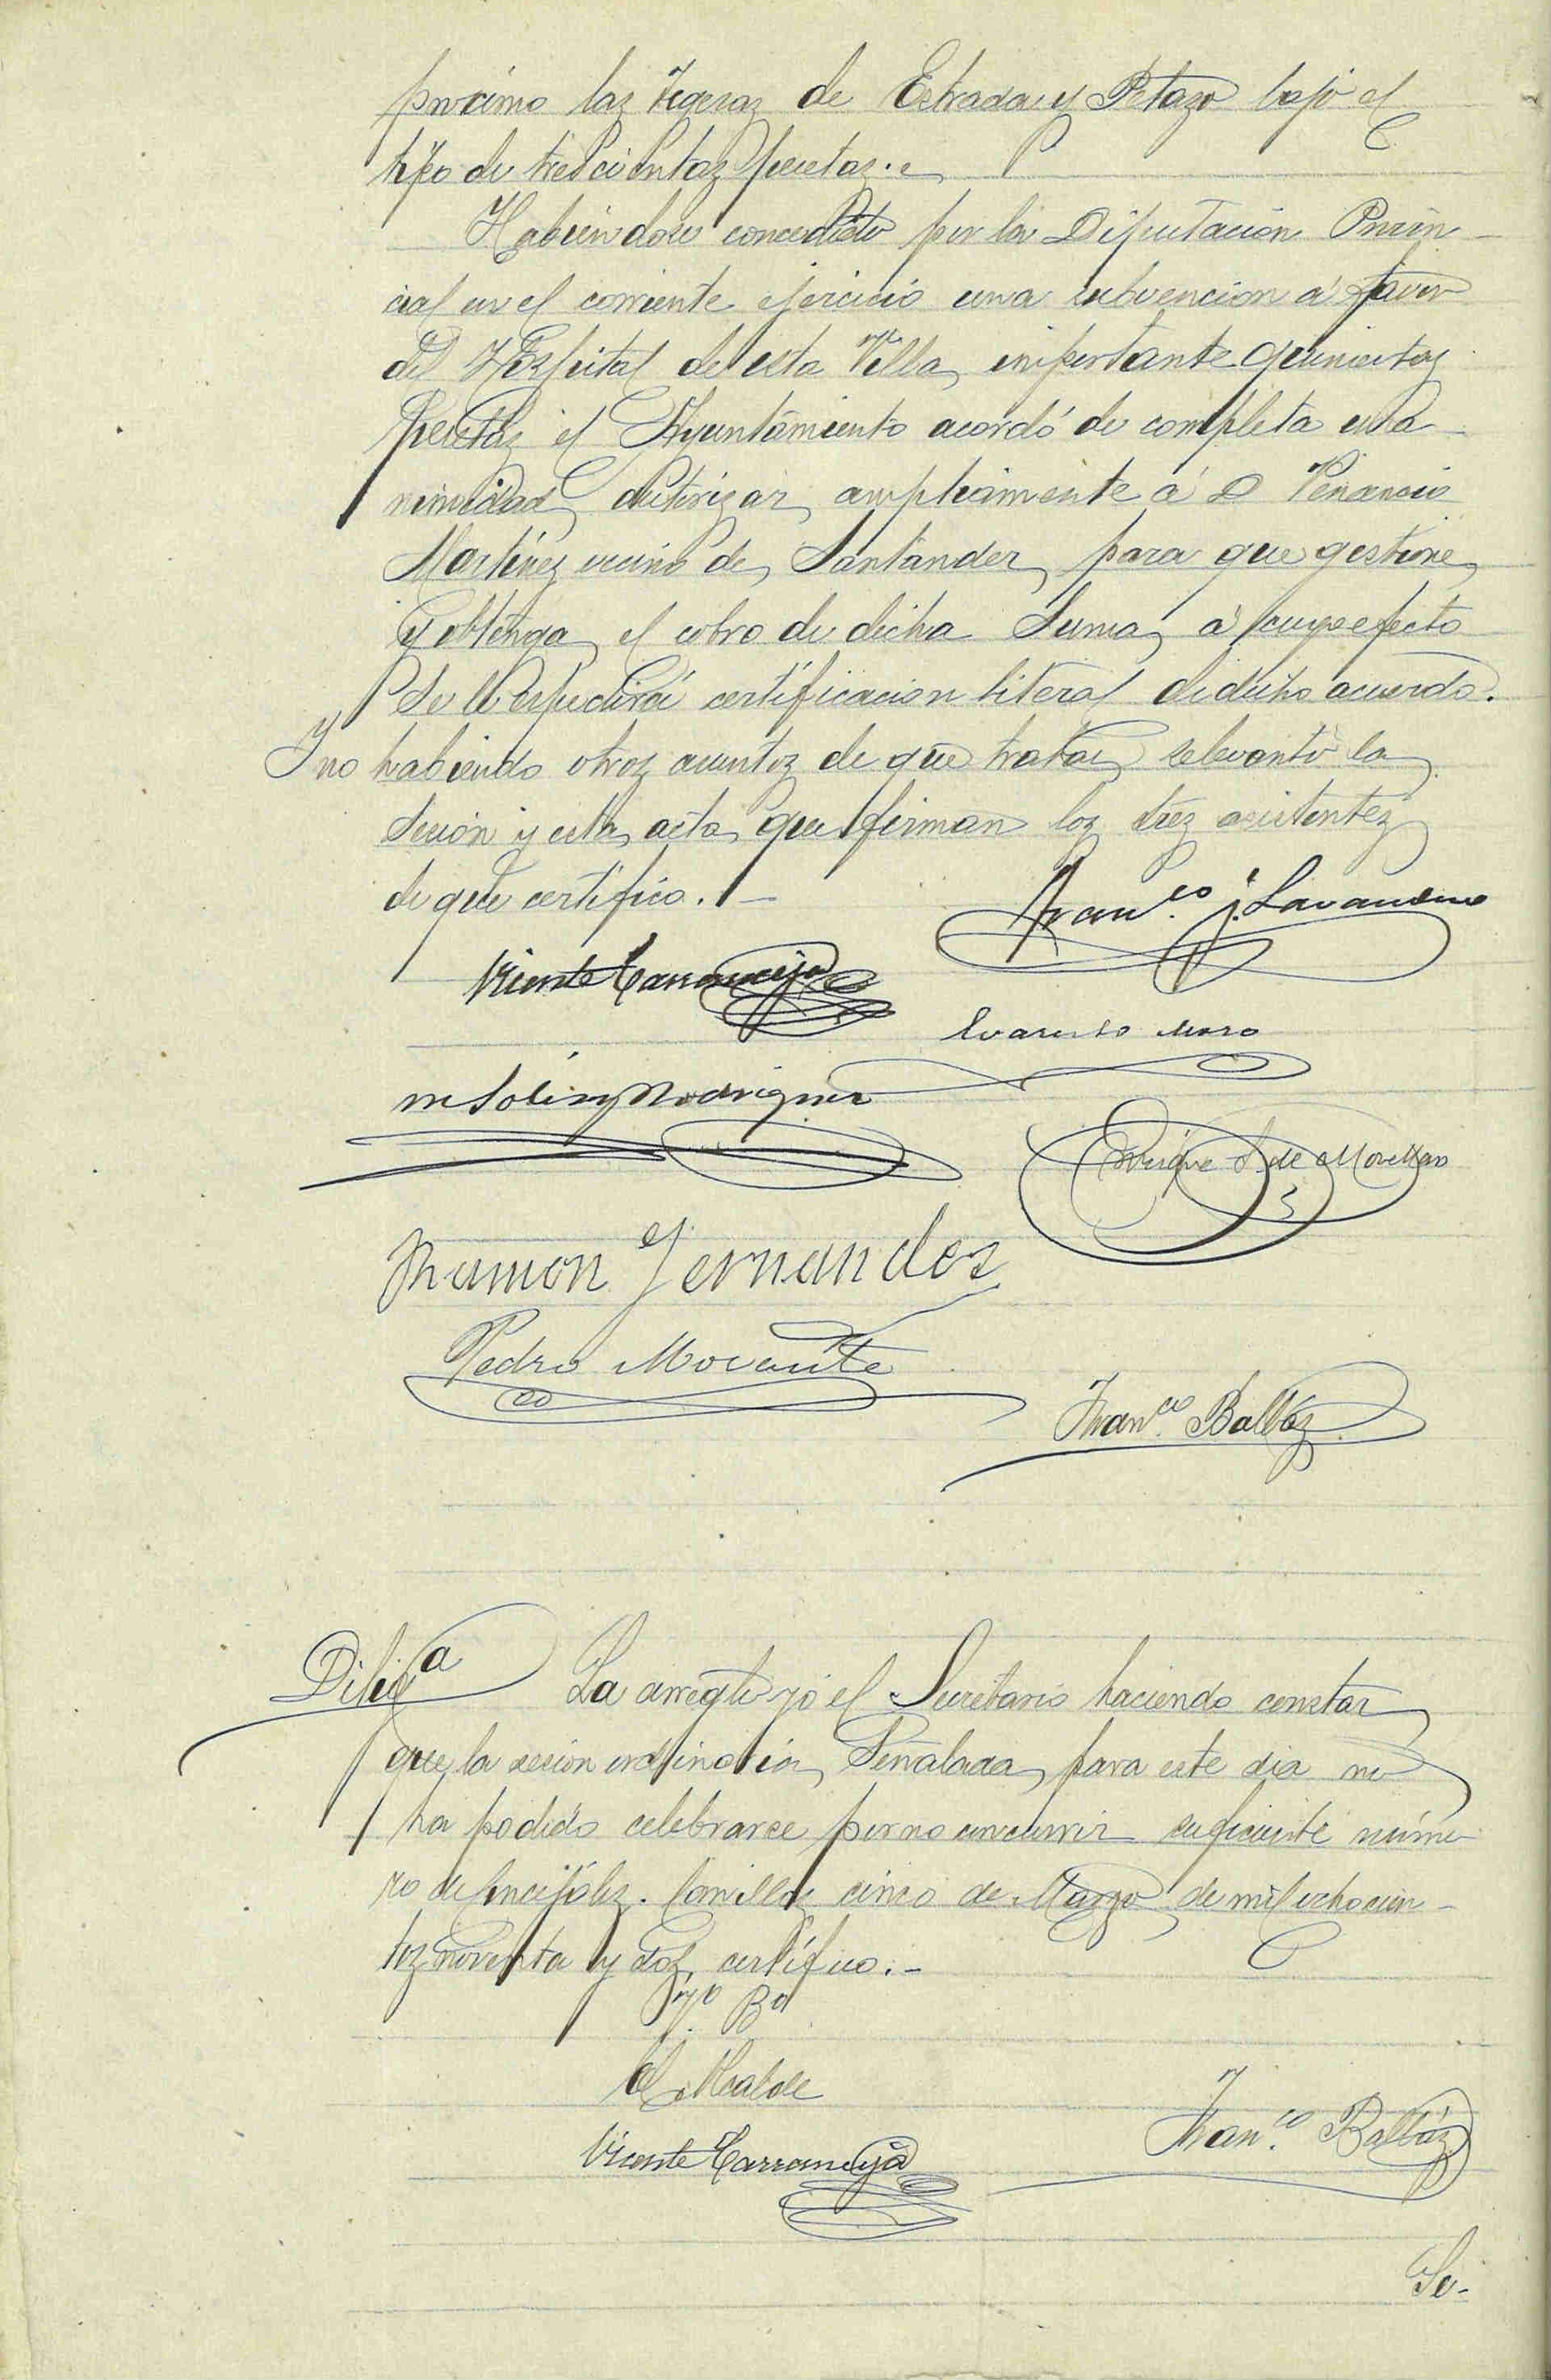 proximo las tegeras de Estrada y Petazo bajo el
tipo de trescientas pesetas.
Habiendose concedido por la Diputación Provin-
cial en el corriente ejercicio una subvencion á favor
del Hospital de esta Villa, importante quinientas
pesetas el Ayuntamiento acordó de completa una-
nimidad autorizar ampliamente á D Venancio
Martinez vecino de Santander para que gestione
y obtenga el cobro de dicha Suma, á cuyo efecto
se le espedirá certificacion literal de dicho acuerdo.
Y no habiendo otros asuntos de que tratar se levantó la
sesión y esta acta que firman los sres asistentes
de que certifico.-
Fran.co J. Lavandero
Vicente Carranceja
Evaristo Moro
M Solis y Rodriguez
Enrique S. de Movellan
Ramon Fernandez
Pedro Morante
Fran.co Balbás
Diliga La arreglo yo el Secretario haciendo constar
que la sesión ordinaria Señalada para este dia no
ha podido celebrarse por no concurrir suficiente núme-
ro de Concejales. Comillas cinco de Marzo de mil ochocien-
tos noventa y dos, certifico.-
Vo Bo
El Alcalde
Vicente Carranceja
Fran.co Balbás
Se-